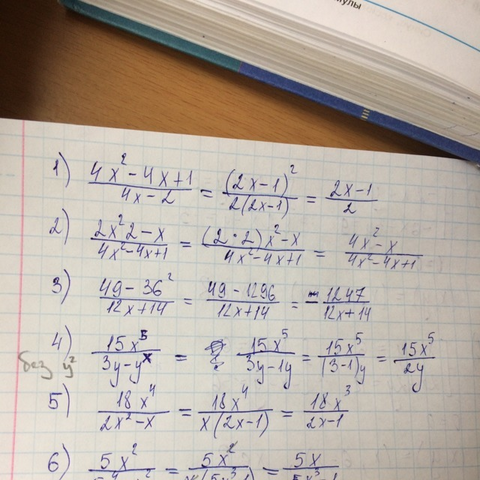 1) (4x² - 4x + 1)/(4x - 2) = (2x - 1)²/(2(2x - 1)) = (2x - 1)/2
2) (2x²2 - x)/(4x² - 4x + 1) = ((2·2)x² - x)/(4x² - 4x + 1) = (4x² - x)/(4x² - 4x + 1)
3) (49 - 36²)/(12x + 14) = (49 - 1296)/(12x + 14) = -1247/(12x + 14)
4) 15x⁵/(3y - y^x) = 15x⁵/(3y - 1y) = 15x⁵/((3 - 1)y) = 15x⁵/2y
без y²
5) 18x⁴/(2x² - x) = 18x⁴/(x(2x - 1)) = 18x³/(2x - 1)
6) 5x² = 5x² = 5x